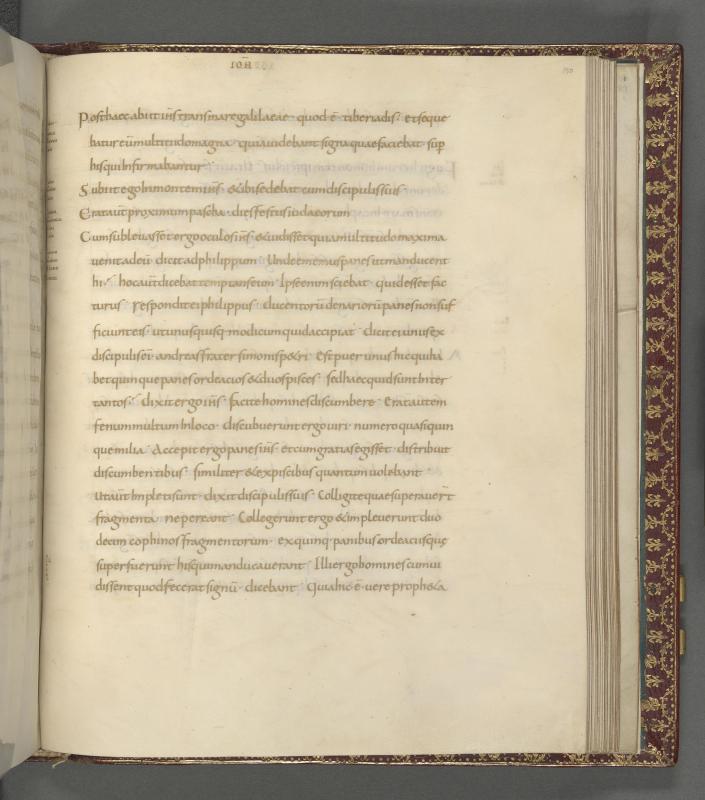 IOH̄
150
Post haec abiit ih̄s trans mare galilaeae · quod ē tiberiadis · et seque
batur eū multitudo magna · quia uidebant signa quae faciebat sup̄
his qui infirmabantur ·
Subiit ergo in montem ih̄s · & ibi sedebat cum discipulis suis ·
Erat aūt proximum pascha · dies festus iudaeorum
Cum subleuasset ergo oculos ih̄s · & uidisset quia multitudo maxima
uenit ad eū dicit ad philippum · Unde ememus panes ut manducent
hi · hoc aūt dicebat temptans eum · Ipse enim sciebat · quid esset fac
turus · respondit ei philippus · ducentorū denariorū panes non suf
ficiunt eis · ut unusquisq· modicum quid accipiat · dicit ei unus ex
discipulis ei· andreas frater simonis p&ri · Est puer unus hic qui ha
bet quinque panes ordeacios & duos pisces · sed haec quid sunt inter
tantos · dixit ergo ih̄s · facite homines discumbere · Erat autem
fenum multum in loco · discubuerunt ergo uiri · numero quasi quin
que milia · Accepit ergo panes ih̄s · et cum gratias egisset · distribuit
discumbentibus · similiter & ex piscibus quantum uolebant ·
Ut aūt impleti sunt · dixit discipulis suis · Colligite quae superauer̄t
fragmenta · ne pereant · Collegerunt ergo & impleuerunt duo
decim cophinos fragmentorum · ex quinq· panibus ordeacis quę
superfuerunt his qui manducauerant · Illi ergo homines cum ui
dissent quod fecerat signū · dicebant · Quia hic ē uere proph&a